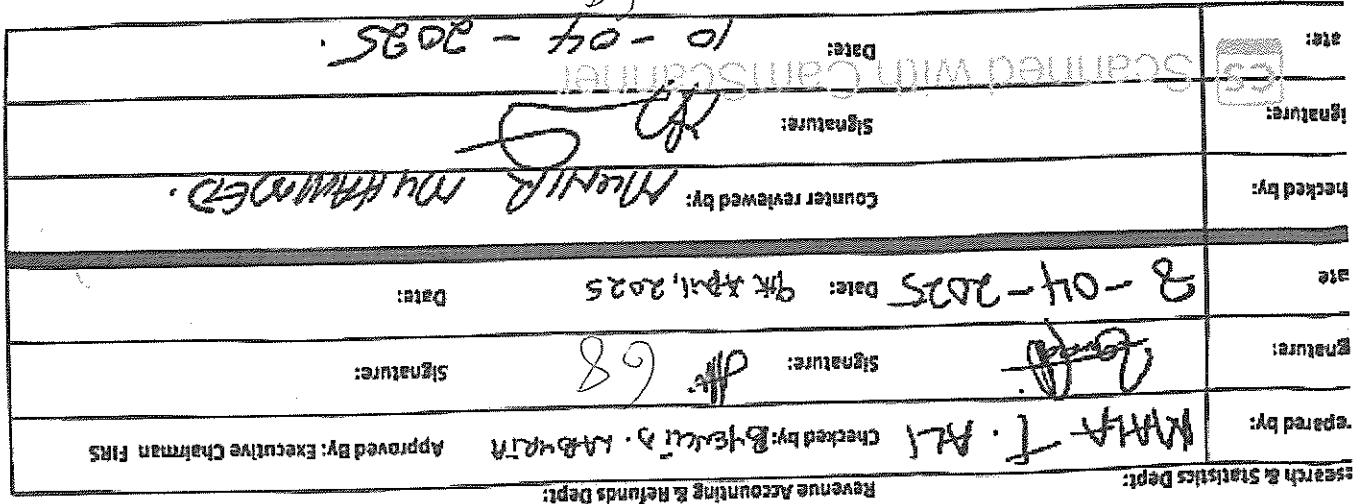 esearch & Statistics Dept: Revenue Accounting & Refunds Dept:
repared by: T. ALI Checked by: Approved By: Executive Chairman FIRS
gnature: Signature: Signature:
ate 8-04-2025 Date: 9th April, 2025 Date:
hecked by: Counter reviewed by: MUNIR MUHAMMED.
ignature: Signature:
ate: Date: 10-04-2025.
CS Scanned with CamScanner